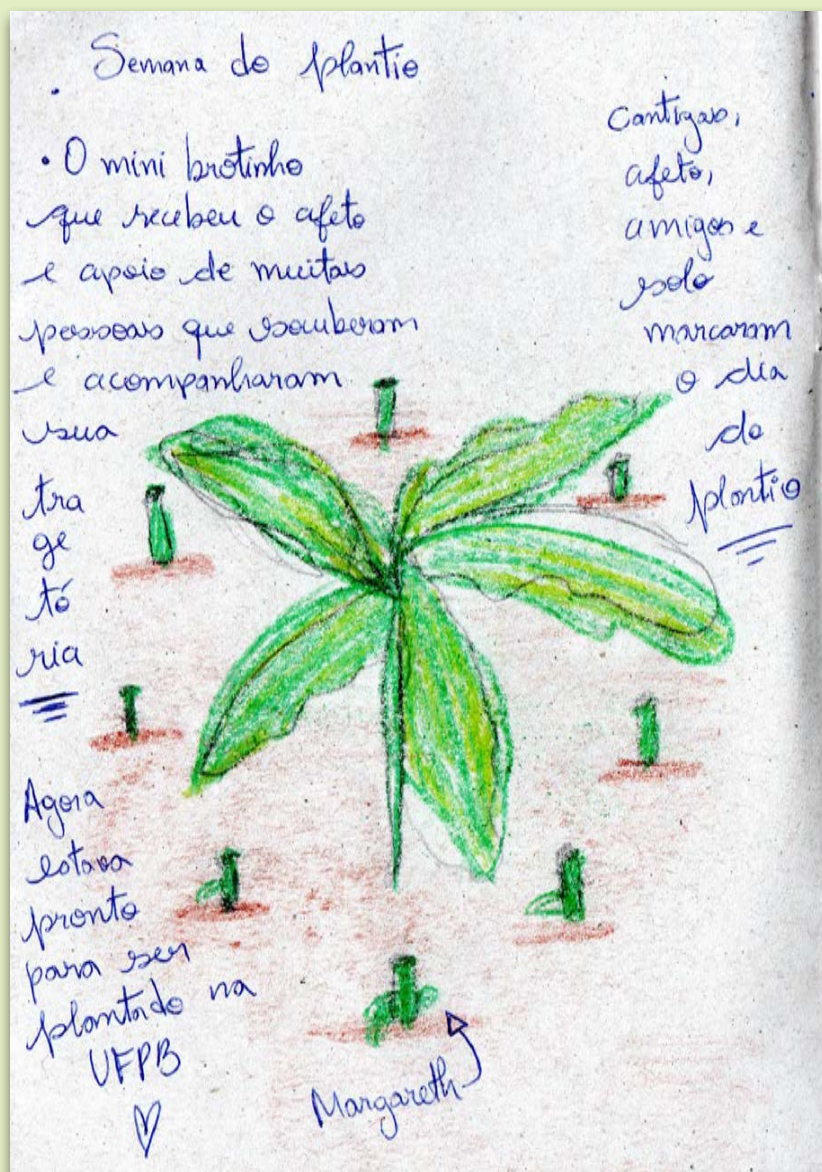 Semana do plantio
• O mini brotinho
que recebeu o afeto
e apoio de muitas
pessoas que souberam
e acompanharam
sua
tra
ge
tó
ria
Agora
estava
pronto
para ser
plantado na
UFPB
Cantigas,
afeto,
amigos e
solo
marcaram
o dia
do
plantio
Margareth